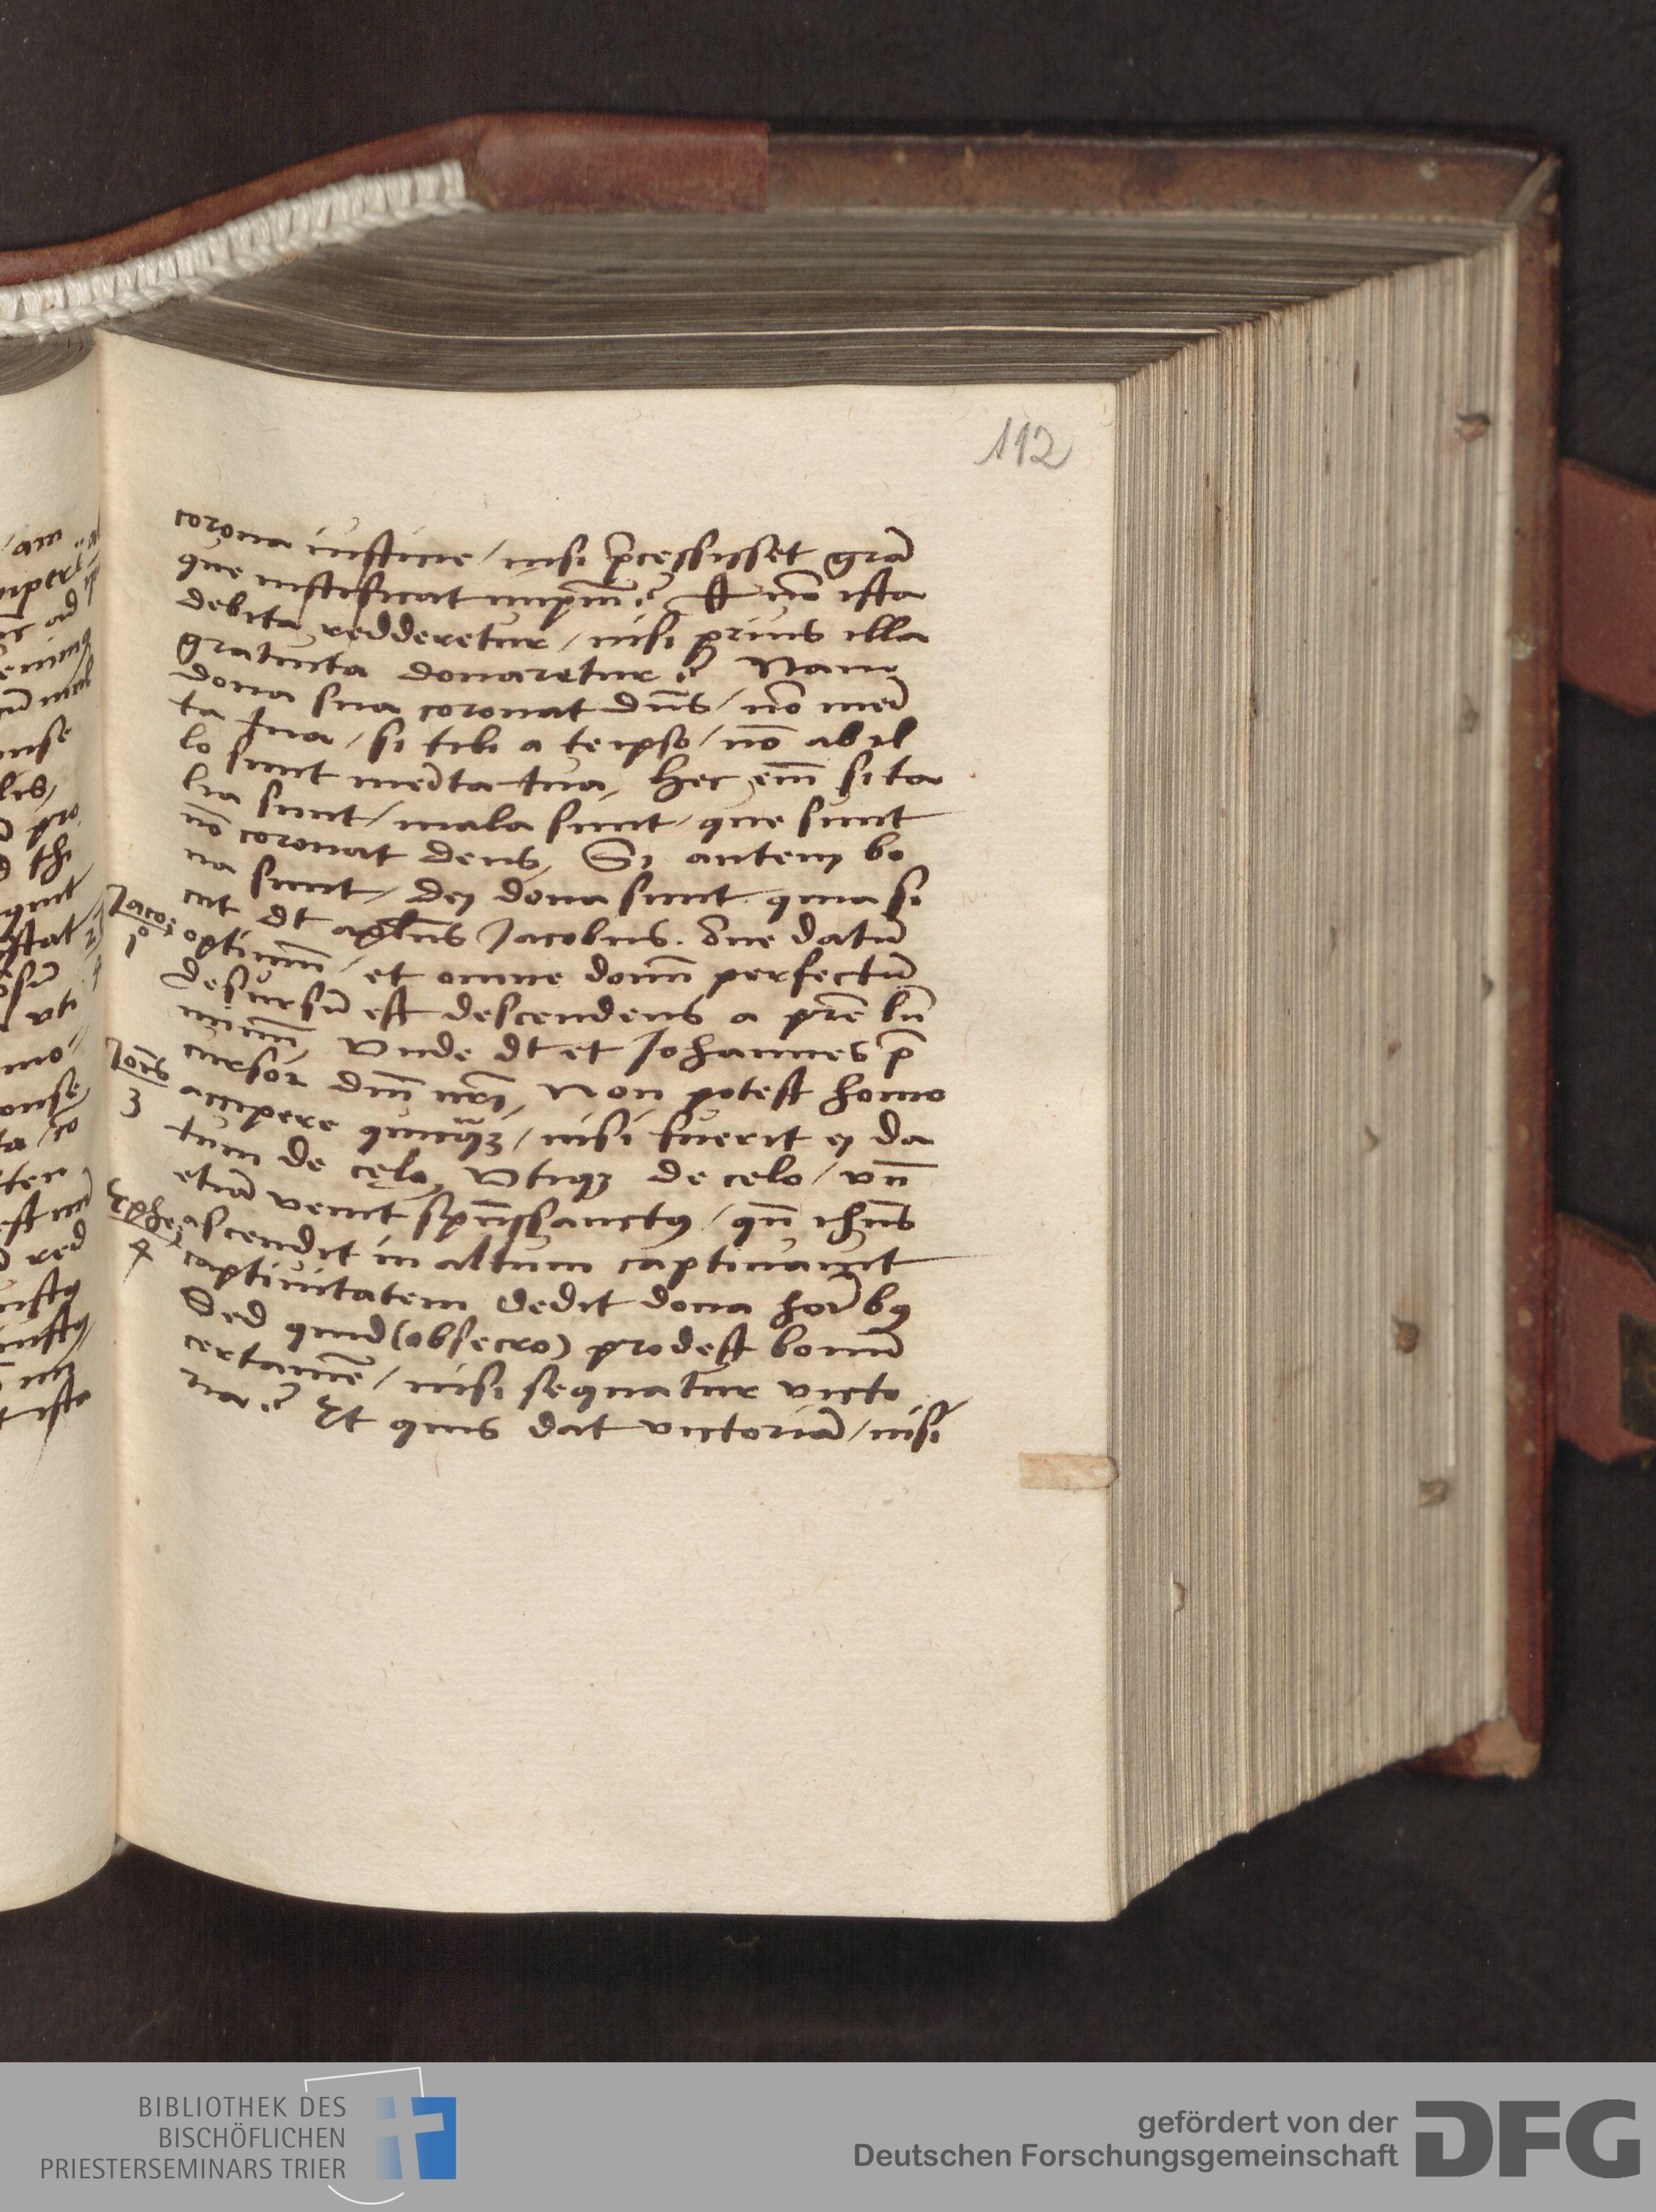 112
corona iusticie / nisi p̄cessisset grā
que iustificat impiū? Et nō ista
debita redderetur / nisi prius illa
gratuita donaretur? Nam
dona sua coronat dn̄s / nō meri
ta tua / si tibi a teipso / nō ab il
lo sunt mērita tua, Hec em̄ si ta
lia sunt / mala sunt / que sunt
nō coronat deus, Si autem bo
na sunt / dei dona sunt quia si
cut dt apl̄us Jacobus. Om̄e datū
optimū / et omne donū perfectū
desursū est descendens a pr̄e lu
minū Vnde dt et Johannes p̄
cursor dn̄i nr̄i, Non potest homo
accipere quicq̄ꝫ / nisi fuerit ei da
tum de celo, Vtiqꝫ de celo / vn̄
etiā venit sp̄ussanctꝰ / qn̄ ihūs
ascendit in altum captiuauit
captiuitatem dedit dona hōibꝰ
Sed quid (obsecro) prodest bonū
certamē / nisi sequatur victo
ria? Et quis dat victoriā / nisi
Jaco:
1º
Joh̄is
3
Ephe:
4
BIBLIOTHEK DES
BISCHÖFLICHEN
PRIESTERSEMINARS TRIER
gefördert von der
Deutschen Forschungsgemeinschaft
DFG